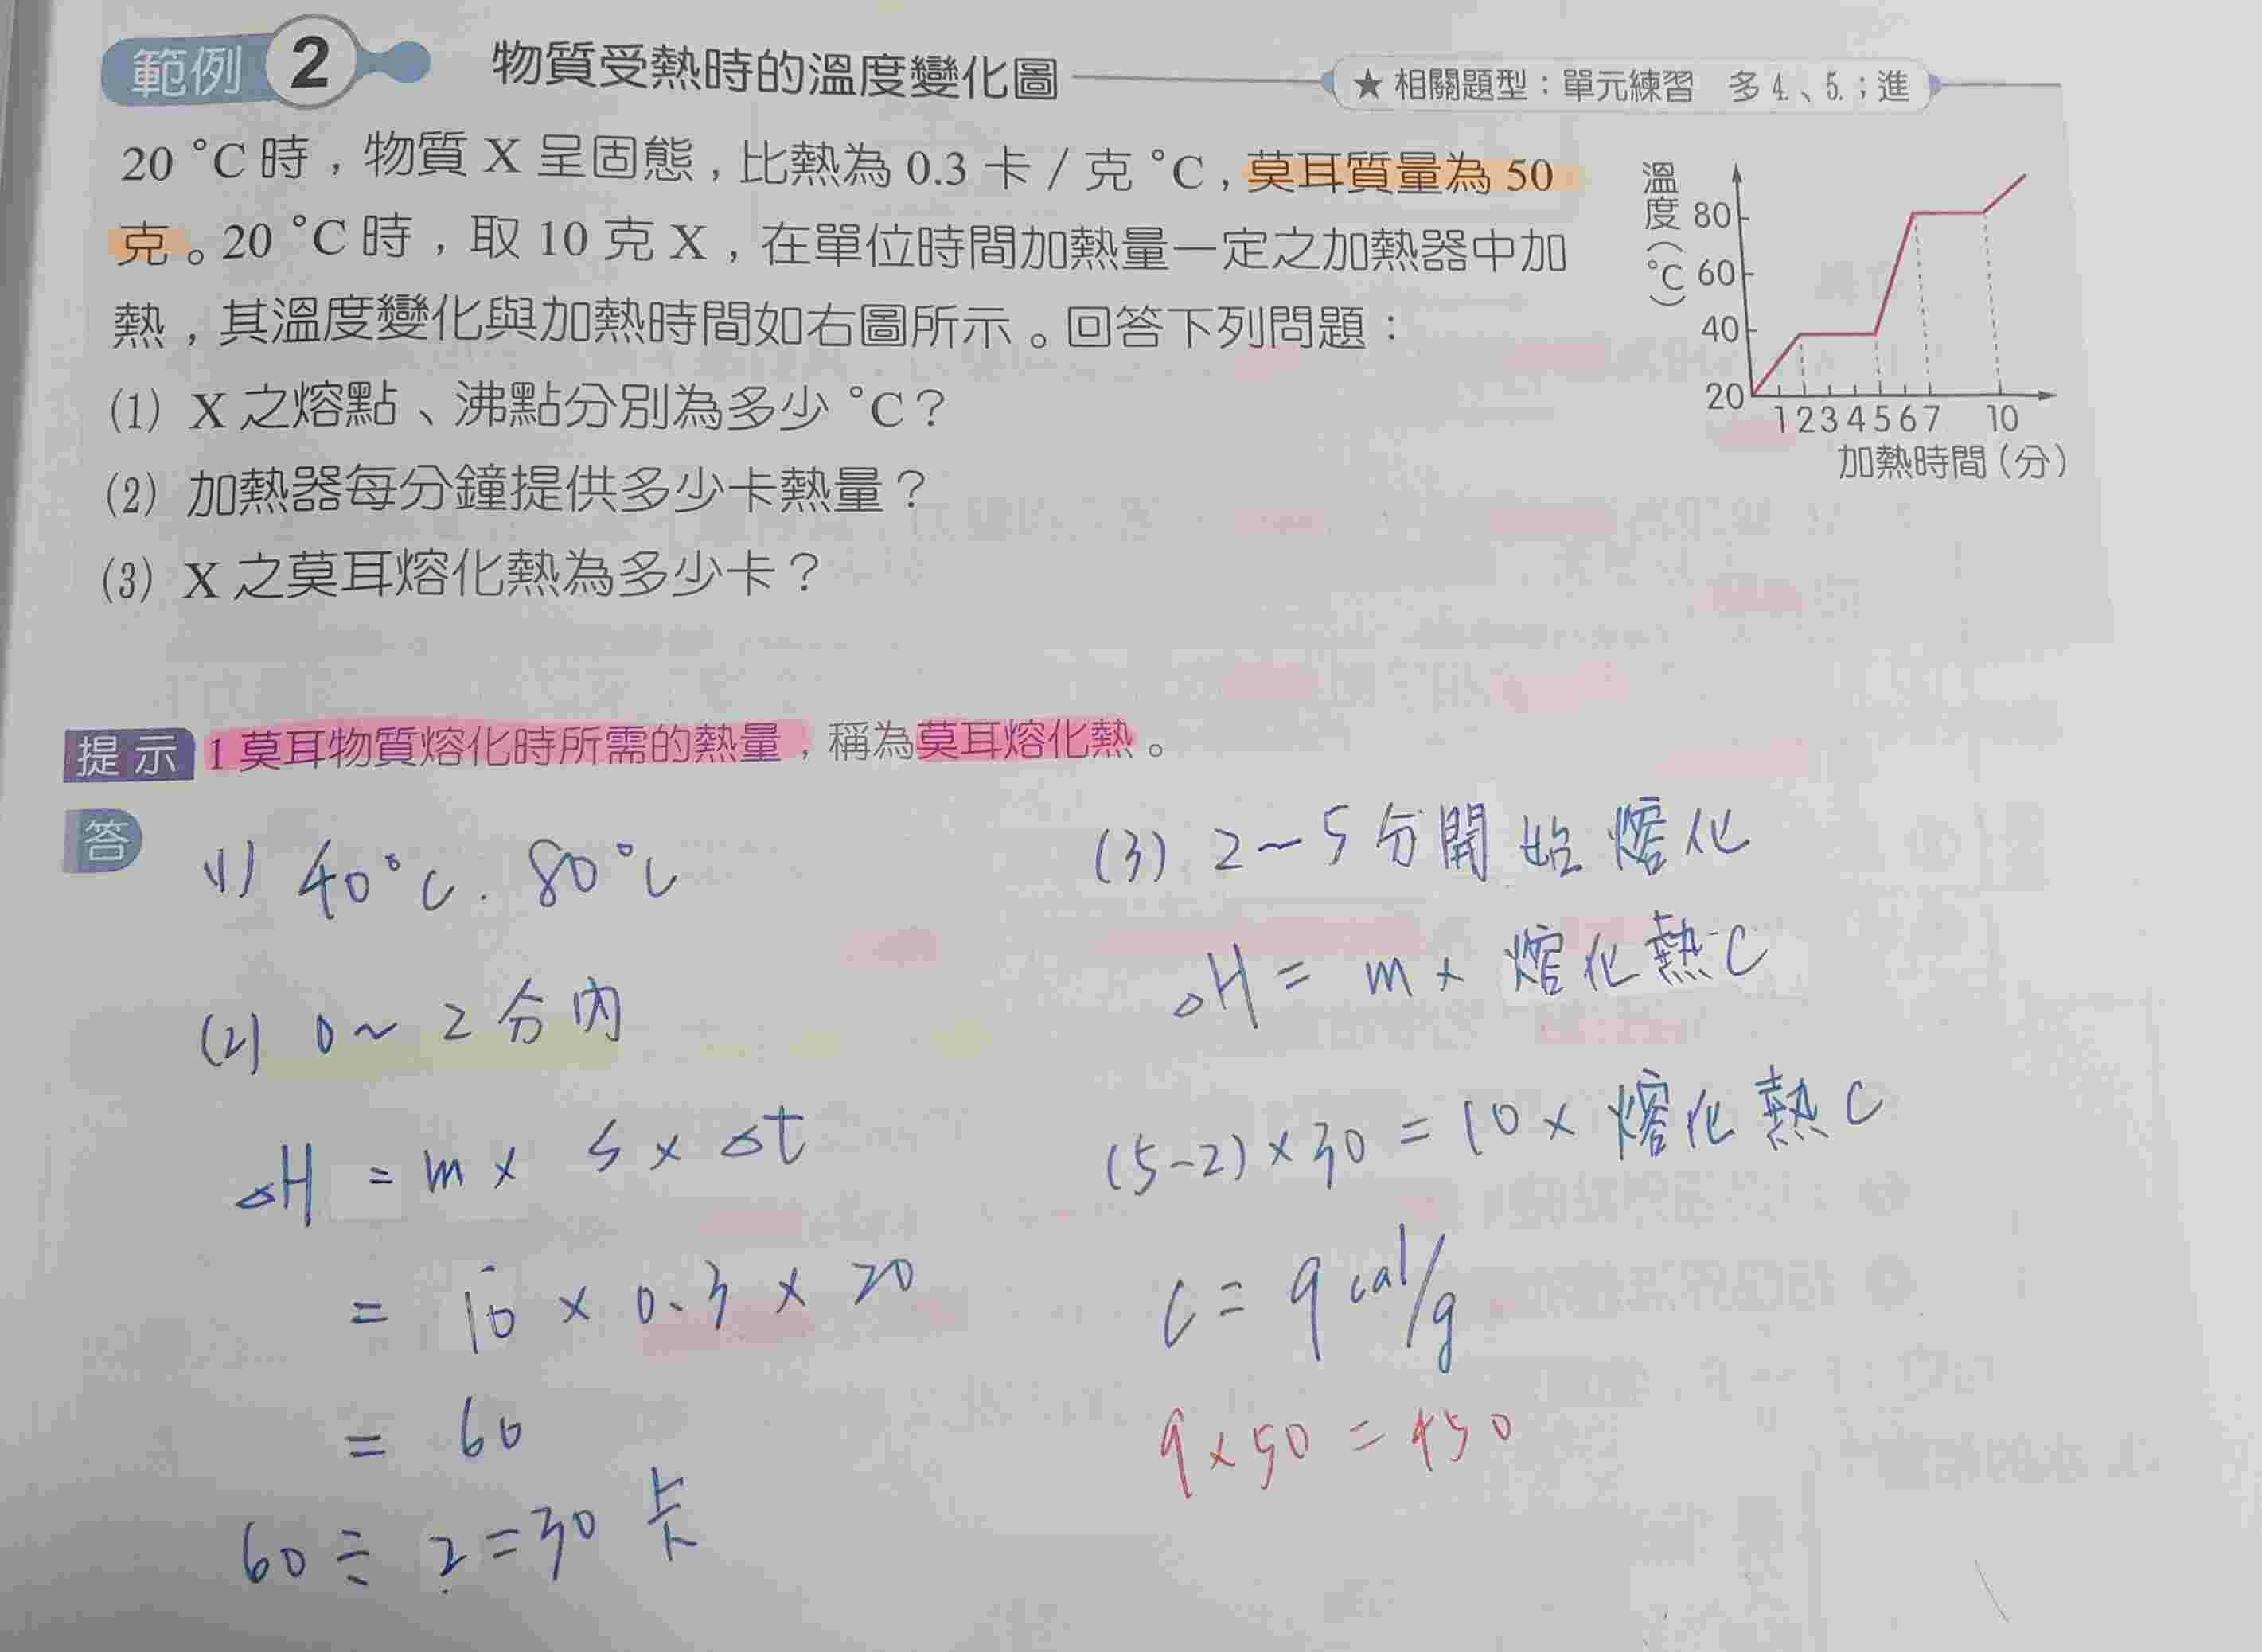 範例 2 物質受熱時的溫度變化圖 ★相關題型：單元練習 多4.、5.；進
20 °C 時，物質 X 呈固態，比熱為 0.3 卡／克 °C，莫耳質量為 50
克。20 °C 時，取 10 克 X，在單位時間加熱量一定之加熱器中加
熱，其溫度變化與加熱時間如右圖所示。回答下列問題：
(1) X 之熔點、沸點分別為多少 °C？
(2) 加熱器每分鐘提供多少卡熱量？
(3) X 之莫耳熔化熱為多少卡？
溫度(°C)
80
60
40
20
1 2 3 4 5 6 7 10
加熱時間(分)
提示 1 莫耳物質熔化時所需的熱量，稱為莫耳熔化熱。
答
(1) 40°C. 80°C
(2) 0~2分內
△H = m × s × △t
= 10 × 0.3 × 20
= 60
60 ÷ 2 = 30 卡
(3) 2~5分開始熔化
△H = m × 熔化熱C
(5-2) × 30 = 10 × 熔化熱C
C = 9 cal/g
9 × 50 = 450